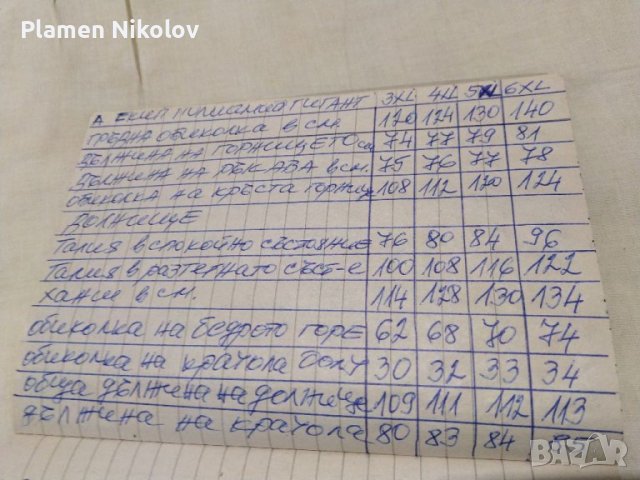 Plamen Nikolov
Д. Екип пижама Гигант 3XL 4XL 5XL 6XL
гръдна обиколка в см. 120 124 130 140
дължена на горнището см 74 77 79 81
дължена на ръкава в см. 75 76 77 78
обиколка на кръста горнищ 108 112 120 124
долнище
Талия в спокойно състояние 76 80 84 96
Талия в разтегнато съст-е 100 108 116 122
Ханш в см. 114 128 130 134
обиколка на бедрото горе 62 68 70 74
обиколка на крачола долу 30 32 33 34
обща дължена на долнище 109 111 112 113
дължена на крачола 80 83 84 85
BAZAR.BG